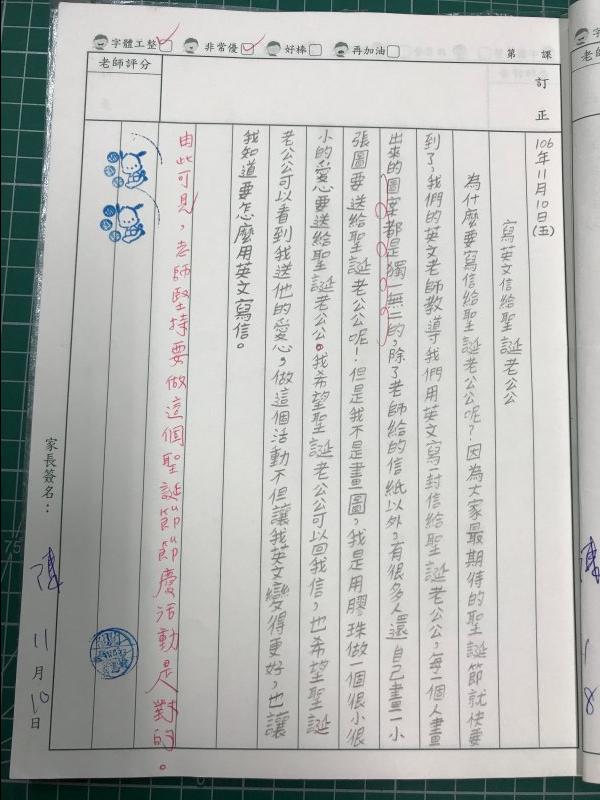 字體工整 非常優 好棒 再加油 第 課
老師評分
訂正
106年11月10日(五)
寫英文信給聖誕老公公
為什麼要寫信給聖誕老公公呢?因為大家最期待的聖誕節就快要
到了,我們的英文老師教導我們用英文寫一封信給聖誕老公公,每一個人畫
出來的圖案都是獨一無二的,除了老師給的信紙以外,有很多人還自己畫一小
張圖要送給聖誕老公公呢!但是我不是畫圖,我是用膠珠做一個很小很
小的愛心要送給聖誕老公公。我希望聖誕老公公可以回我信,也希望聖誕
老公公可以看到我送他的愛心,做這個活動不但讓我英文變得更好,也讓
我知道要怎麼用英文寫信。
由此可見,老師堅持要做這個聖誕節節慶活動是對的。
家長簽名: 陳 11月10日